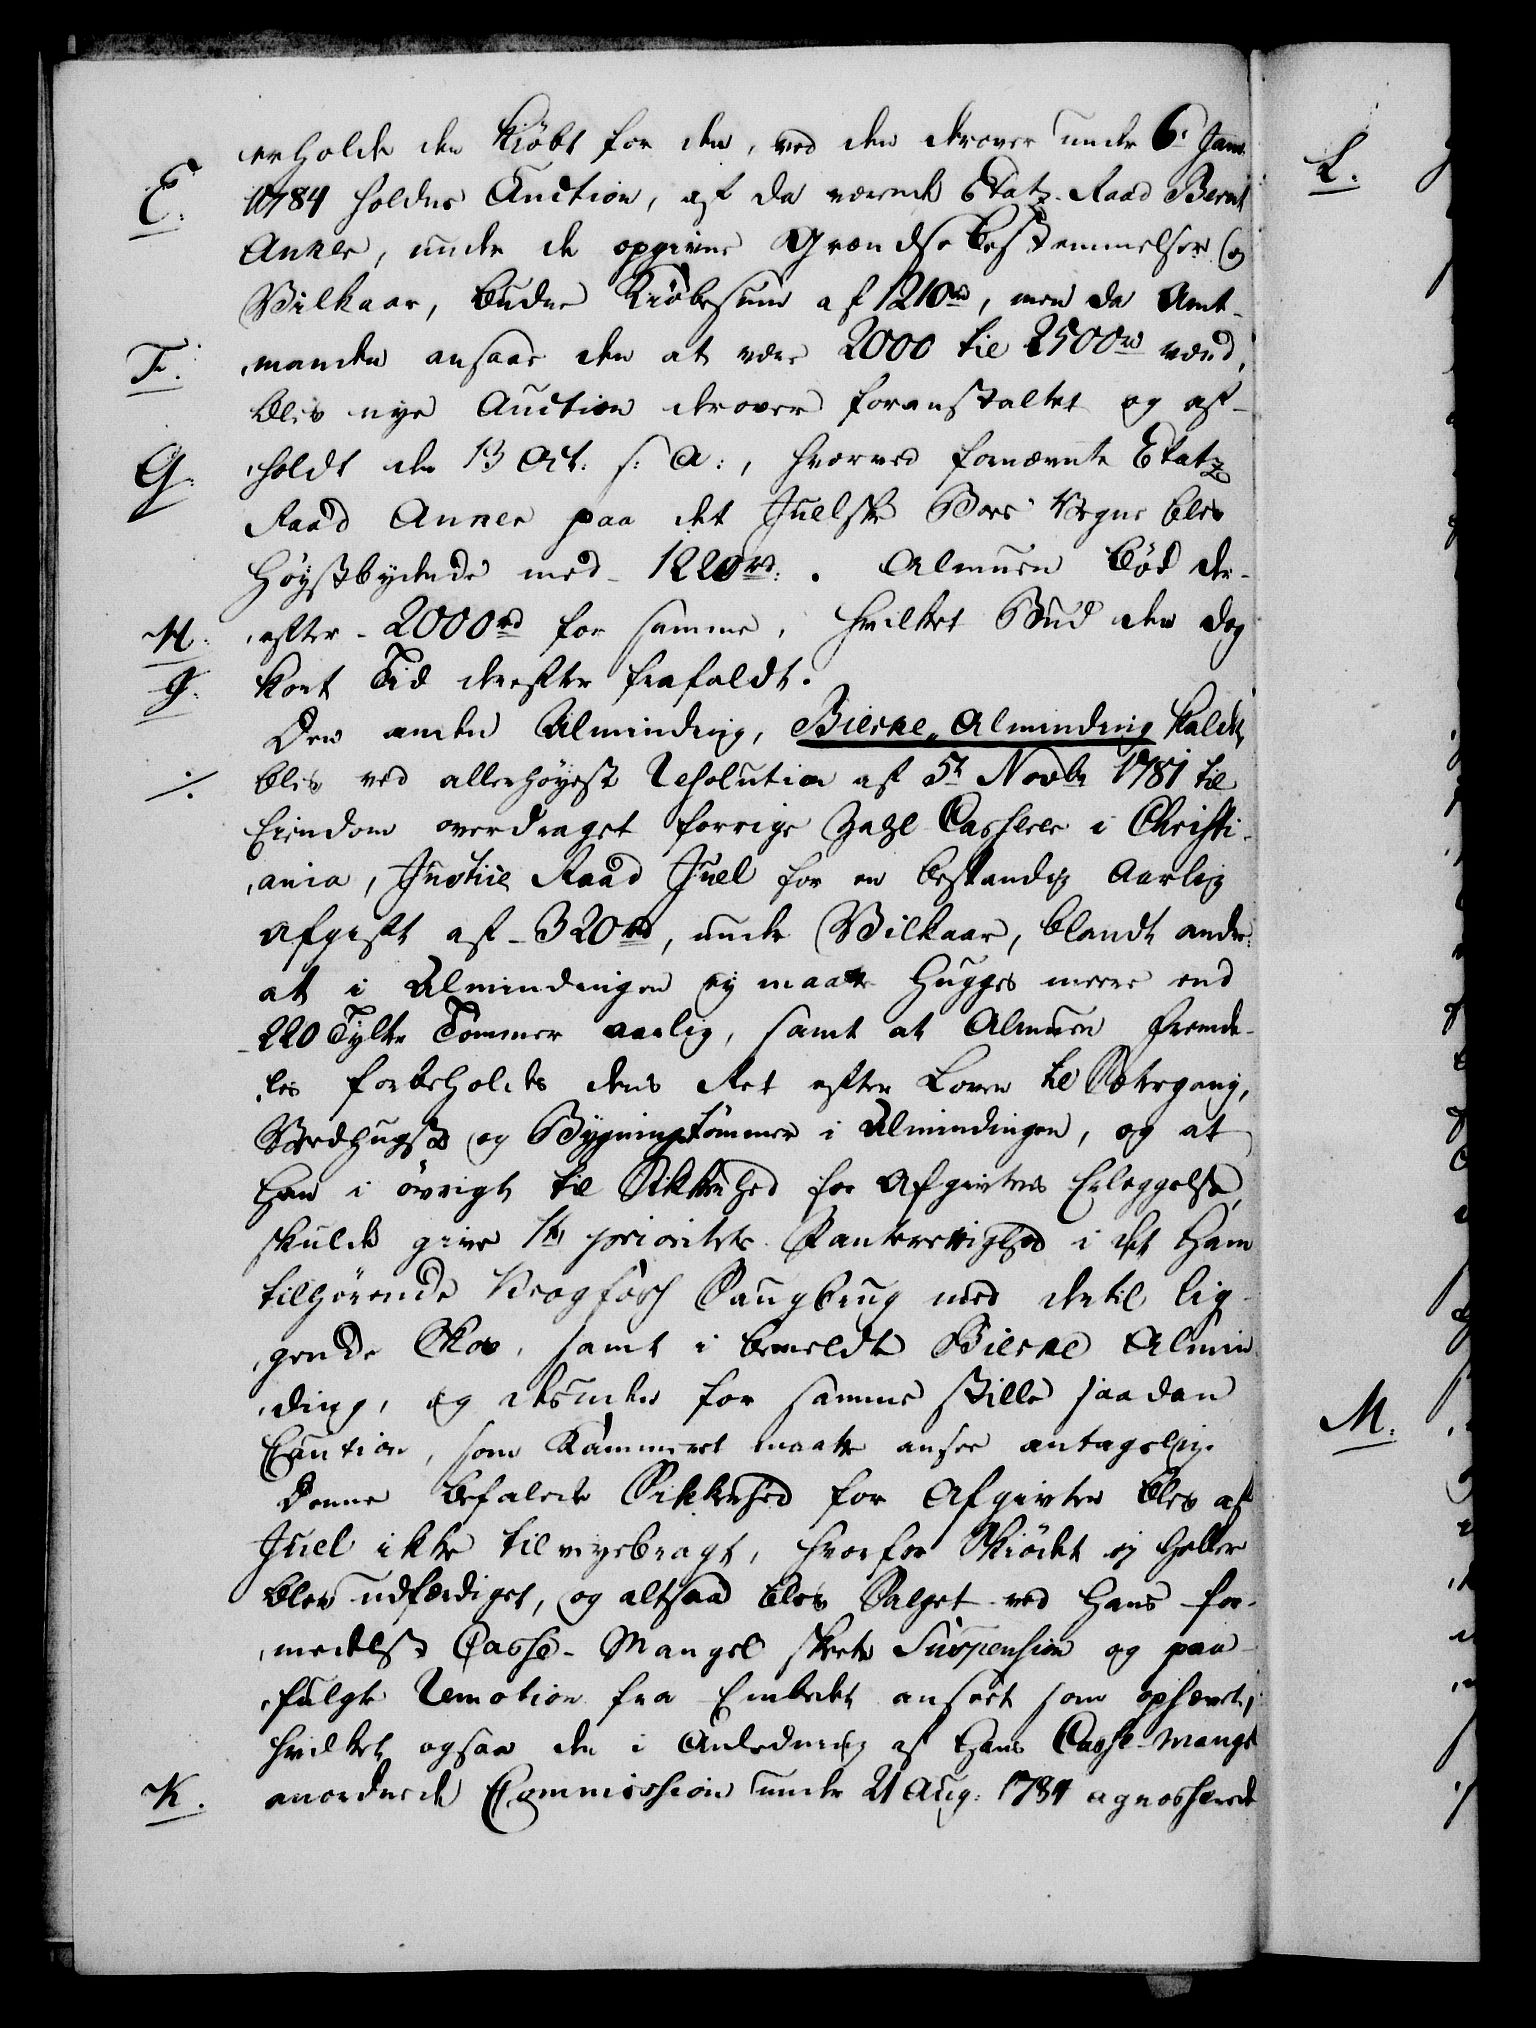 erholde den kiöbt for den, ved den derover under 6. Janr.
E. 1784 holdne Auction, af da værende Etatz-Raad Bernt
Anker, under de opgivne Grændsebestemmelser og
Vilkaar, budne Kiöbesum af 1210 rd, men da Amt-
F. manden ansaae den at være 2000 til 2500 rd værd,
blev nye Auction derover foranstaltet og af-
G. holdt den 13 Oct: s: A:, hvorved fornævnte Etatz
Raad Anker paa det Juelske Boes Vegne blev
Höystbydende med 1220 rd: . Almuen böd der-
H. efter 2000 rd for samme, hvilket Bud den dog
J. kort Tid derefter frafaldt.
Den anden Alminding, Bierke-Alminding kaldet,
./. blev ved allerhöyest Resolution af 5te Novbr 1781 til
Eiendom overdraget forrige Zahl-Casserer i Christi-
ania, Justice Raad Juel for en bestandig Aarlig
Afgift af 320 rd, under Vilkaar, blandt andre:
at i Almindingen ey maatte hugges meere end
220 Tylter Tömmer aarlig, samt at Almuen fremde-
les forbeholdes dens Ret efter Loven til Sætergang,
Vedhugst og Bygningstömmer i Almindingen, og at
han i övrigt til Sikkerhed for Afgivtens Erleggelse
skulde give 1te prioritets Panterettighed i det ham
tilhörende Krogfoss Saugbrug med dertil lig-
gende Skov, samt i bemeldte Bierke Almin-
ding, og desuden for samme stille saadan
Caution, som Kammeret maatte ansee antagelig.
Denne befalede Sikkerhed for Afgivten blev af
Juel ikke tilveyebragt, hvorfor Skiödet ej heller
blev udfærdiget, og altsaa blev Salget ved hans for-
medelst Casse-Mangel skeete Suspension og paa-
fulgte Remotion fra Embedet anseet som ophævet,
hvilket ogsaa den i Anledning af hans Casse-Mangel
K. anordnede Commission under 21 Aug: 1784 agnoscerede
L.
M.